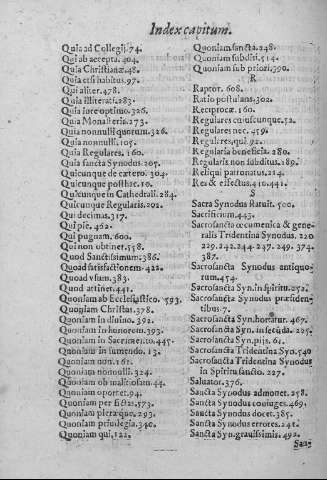 Index capitum.
Quia ad Collegij. 74.
Qui ab accepta. 404.
Quia Christianæ. 48.
Quia etsi habitus. 97.
Qui aliter. 478.
Quia illiterati. 283.
Quia iure optimo. 326.
Quia Monasteria. 273.
Quia nonnulli quorum. 326.
Quia nonnulli. 105.
Quia Regulares. 160.
Quia sancta Synodus. 205.
Quicunque de cætero. 304.
Quicunque posthac. 10.
Quicunque in Cathedrali. 284.
Quicunque Regularis. 202.
Qui decimas. 317.
Qui pie. 462.
Qui pugnam. 600.
Qui non obtinet. 558.
Quod Sanctissimum. 386.
Quoad satisfactionem. 422.
Quoad vsum. 383.
Quod attinet. 441.
Quoniam ab Ecclesiastico. 593.
Quoniam Christus. 378.
Quoniam in diuino. 392.
Quoniam in honorem. 393.
Quoniam in Sacramento. 445.
Quoniam in sumendo. 13.
Quoniam non. 161.
Quoniam nonnulli. 324.
Quoniam ob malitiosam. 44.
Quoniam oportet. 94.
Quoniam per Ectasi. 573.
Quoniam pleræque. 293.
Quoniam priuilegia. 340.
Quoniam qui. 122.
Quoniam sancta. 248.
Quoniam subditi. 514.
Quoniam sub priori. 390.
R
Raptor. 608.
Ratio postulans. 302.
Reciproca. 160.
Regulares cuiuscunque. 52.
Regulares nec. 459.
Regulares, qui. 92.
Regularia beneficia. 280.
Regularis non subditus. 189.
Reliqui patronatus. 214.
Res & effectus. 410. 441.
S
Sacra Synodus statuit. 500.
Sacrificium. 443.
Sacrosancta œcumenica & generalis
Tridentina Synodus. 220
229. 242. 244. 247. 249. 374.
387.
Sacrosancta Synodus antiquorum.
454.
Sacrosancta Syn. in spiritu. 252.
Sacrosancta Synodus præsidentibus.
7.
Sacrosancta Syn. hortatur. 467.
Sacrosancta Syn. in secũda. 225.
Sacrosancta Syn. pijs. 64.
Sacrosancta Tridentina Syn. 540
Sacrosancta Tridentina Synodus
in Spiritu sancto. 227.
Saluator. 376.
Sancta Synodus admonet. 258.
Sancta Synodus coniuges. 469.
Sancta Synodus docet. 385.
Sancta Synodus errores. 241.
Sancta Syn. grauissimis. 492.
San-